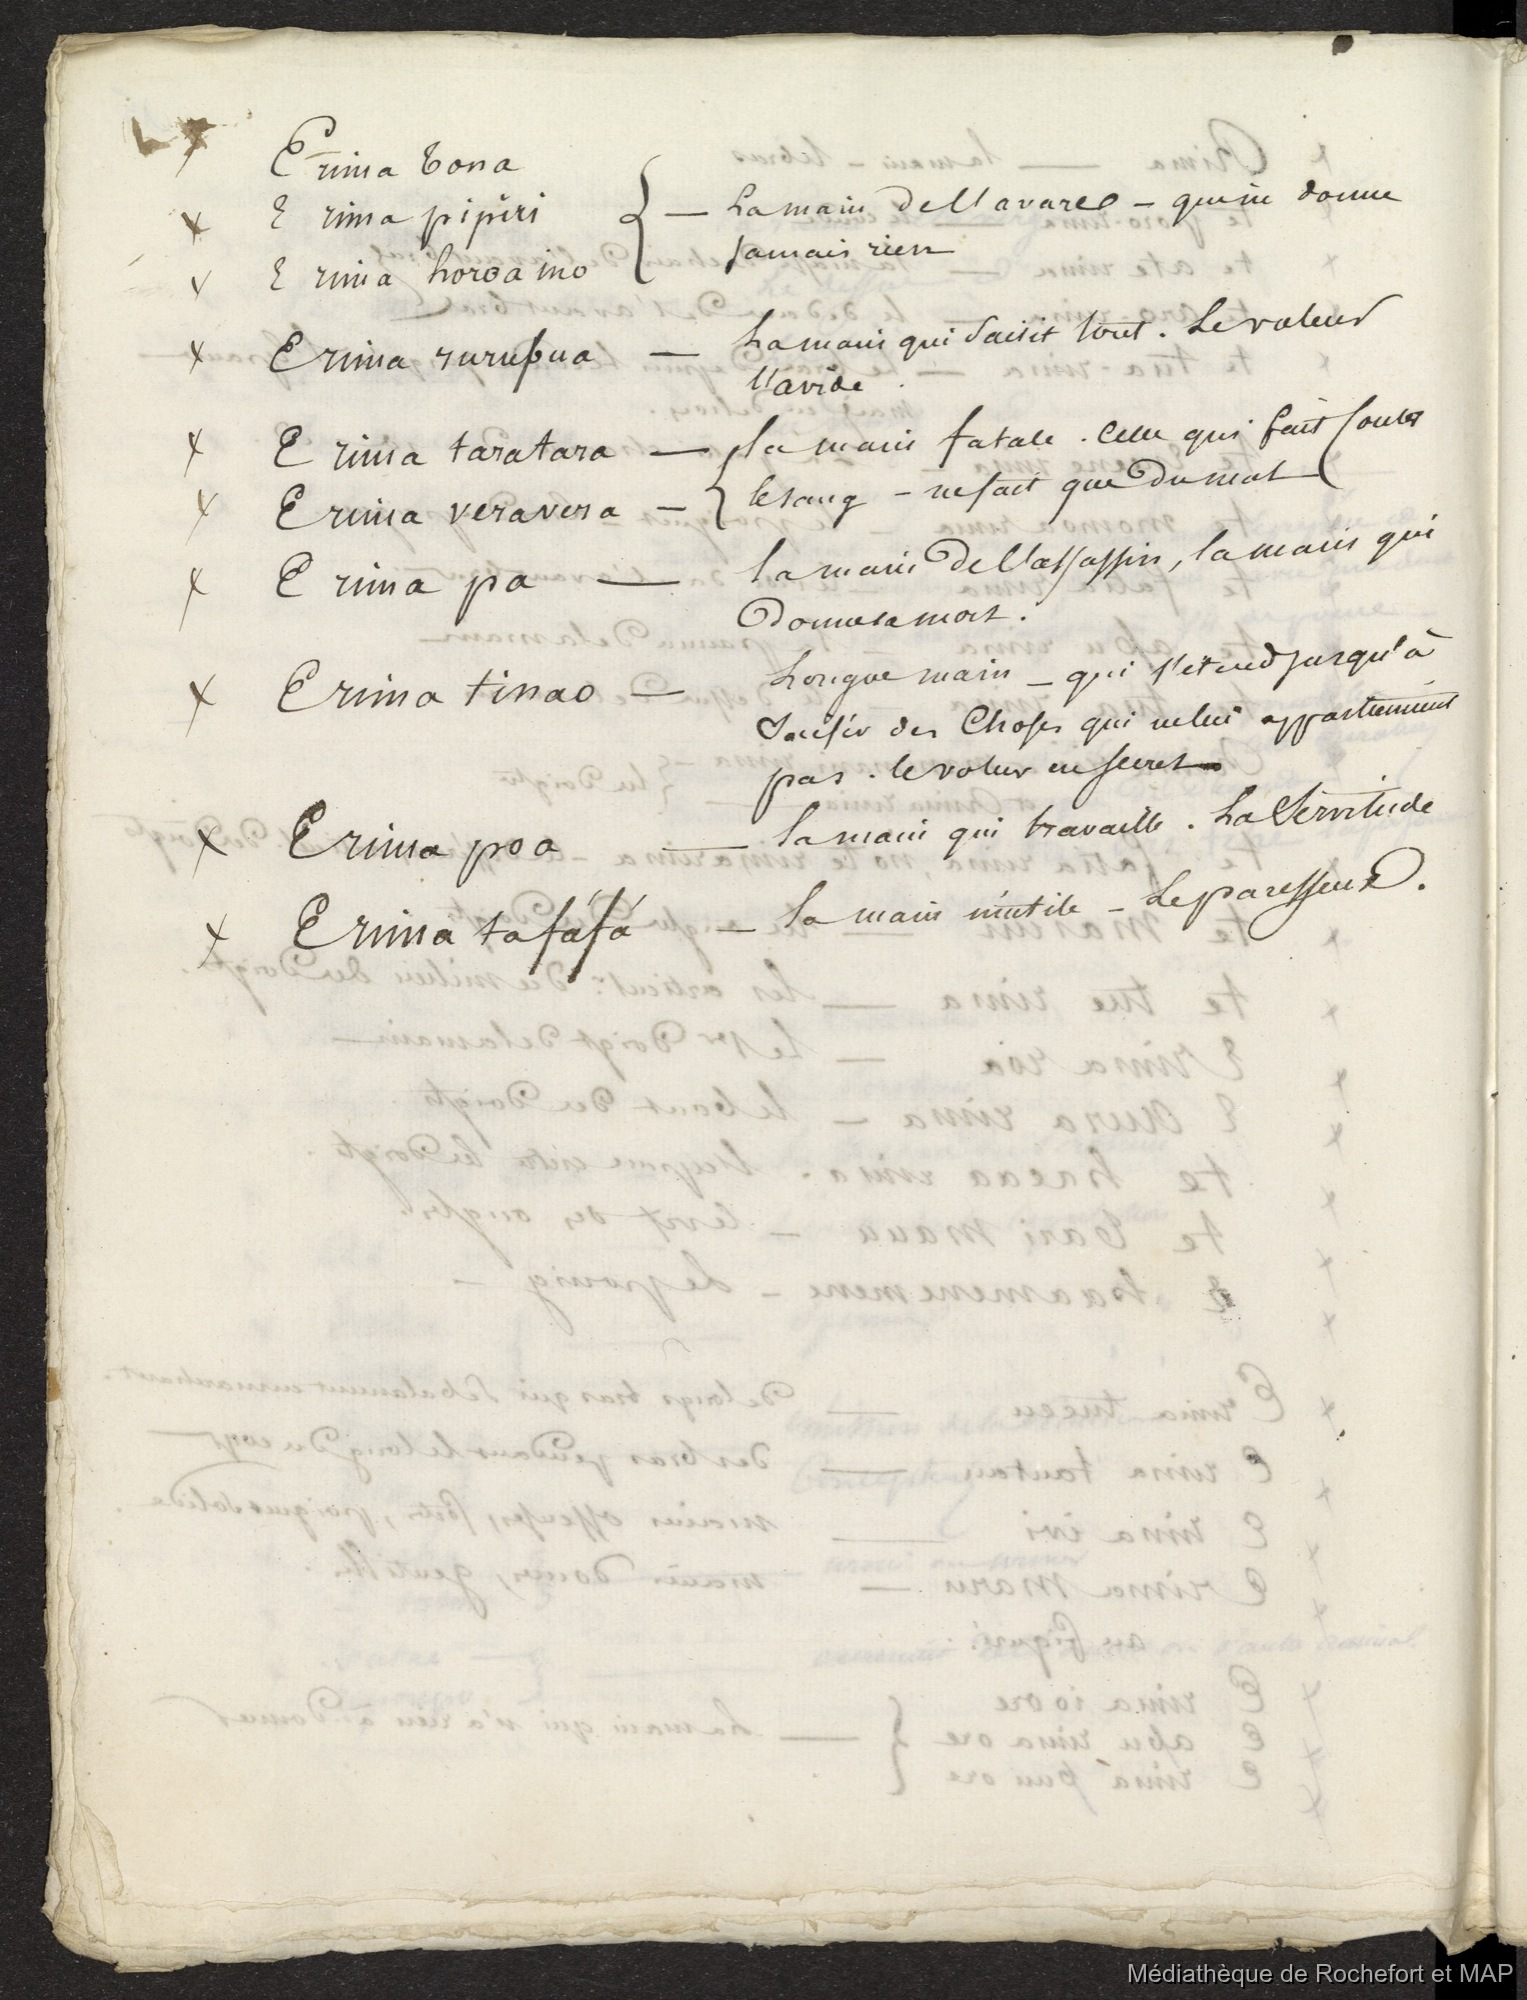 x E rima bona
x E rima pipiri { — La main de l'avare – qui ne donne
x E rima horoa ino jamais rien
x E rima rurufua — La main qui saisit tout. Le voleur
l'avide.
x E rima taratara — { la main fatale. Celle qui fait couler
x E rima veravera — le sang – ne fait que du mal
x E rima pa — la main de l'assassin, la main qui
donne la mort.
x E rima tinao — Longue main – qui s'étend jusqu'à
saisir des choses qui ne lui appartiennent
pas. le voleur en secret
x E rima poa — la main qui travaille. La Servitude
x E rima tafáfá — la main inutile – Le paresseux.
Médiathèque de Rochefort et MAP